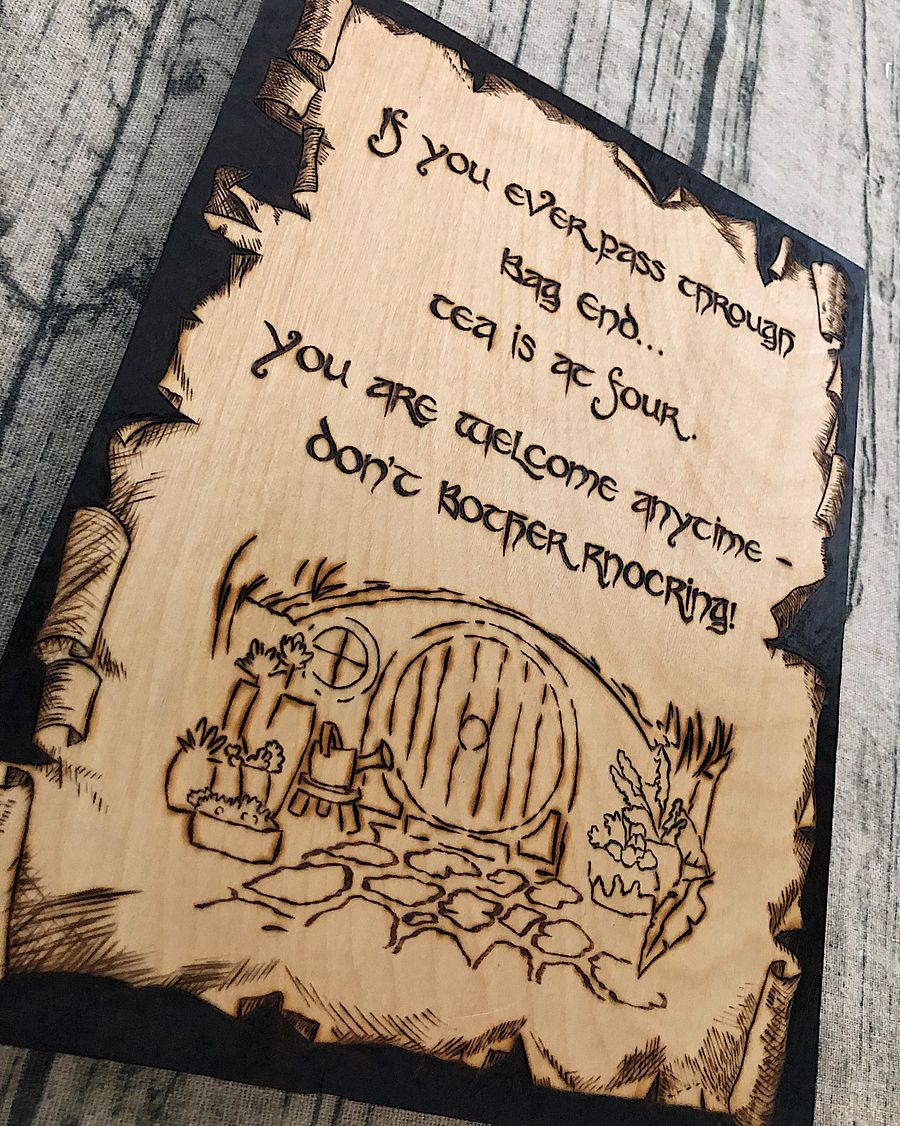 If you ever pass through
Bag End...
tea is at four.
You are welcome anytime -
don't bother knocking!